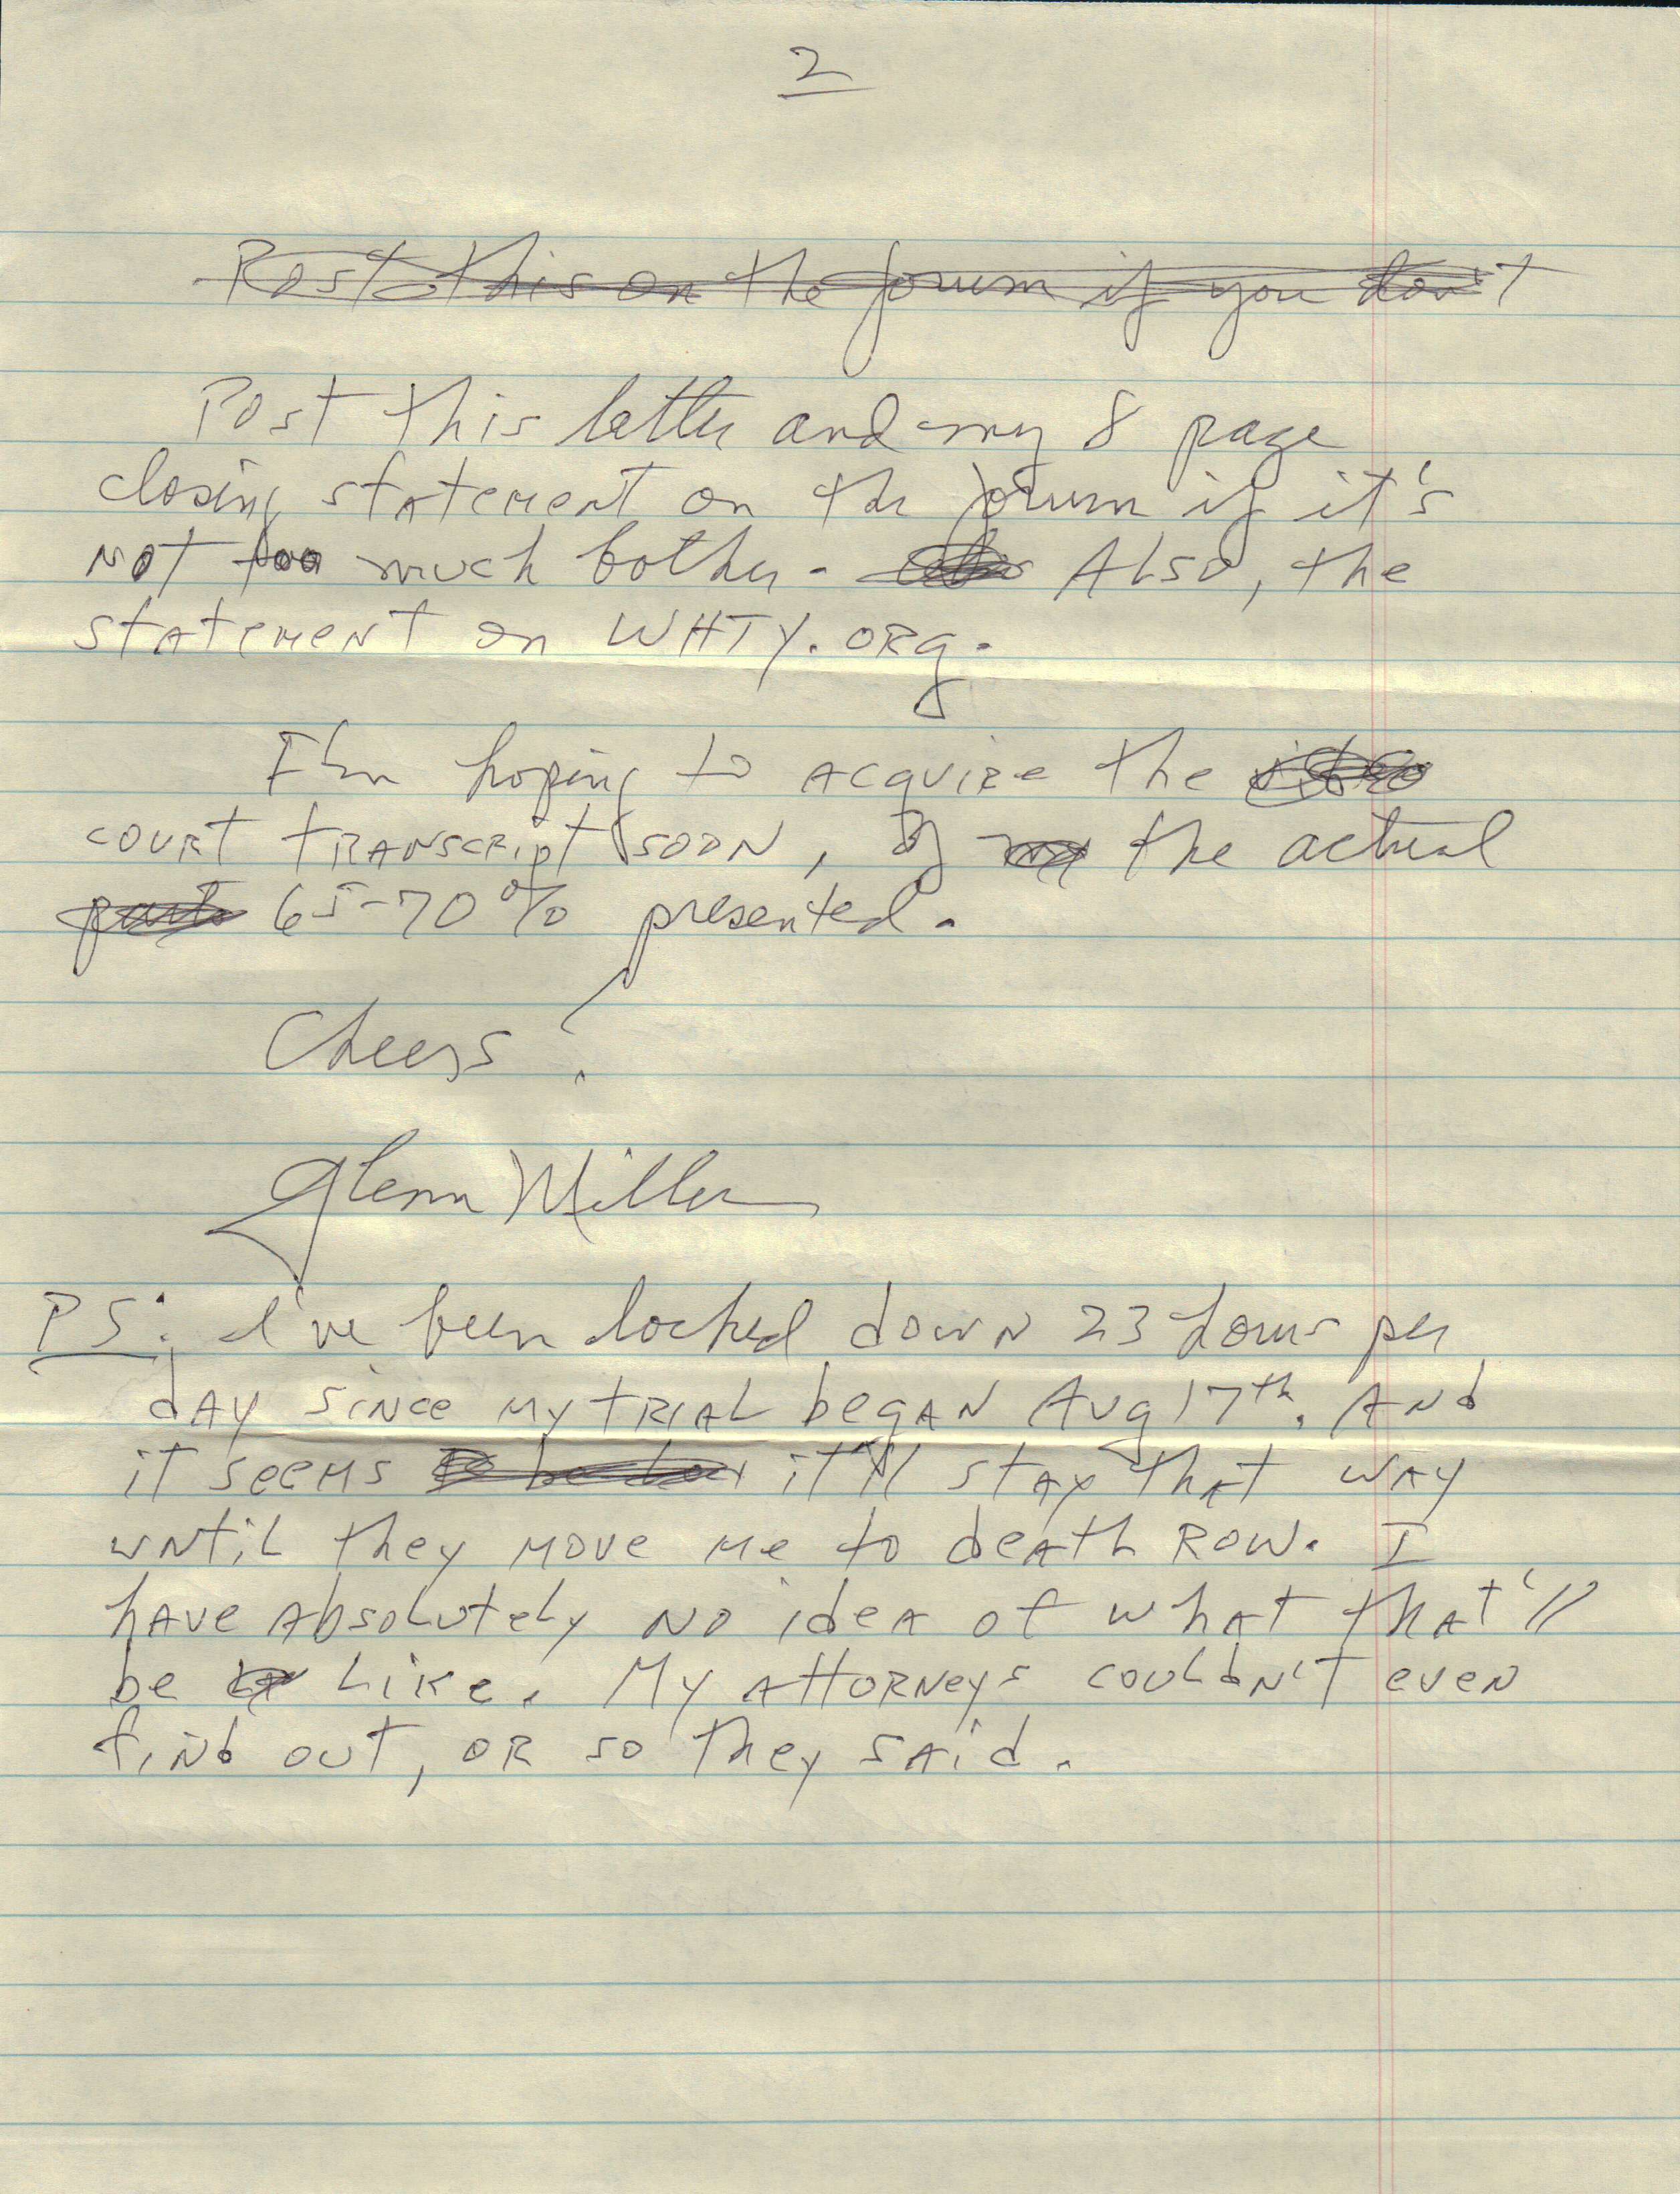 2
Post this on the forum if you don't
Post this letter and my 8 page
closing statement on the forum if it's
not too much bother. Also, the
statement on WHTY.ORG.
I'm hoping to acquire the
court transcript soon, of the actual
65-70% presented.
Cheers!
Glenn Miller
PS: I've been locked down 23 hours per
day since my trial began Aug 17th. And
it seems it'll stay that way
until they move me to death row. I
have absolutely no idea of what that'll
be like. My attorneys couldn't even
find out, or so they said.